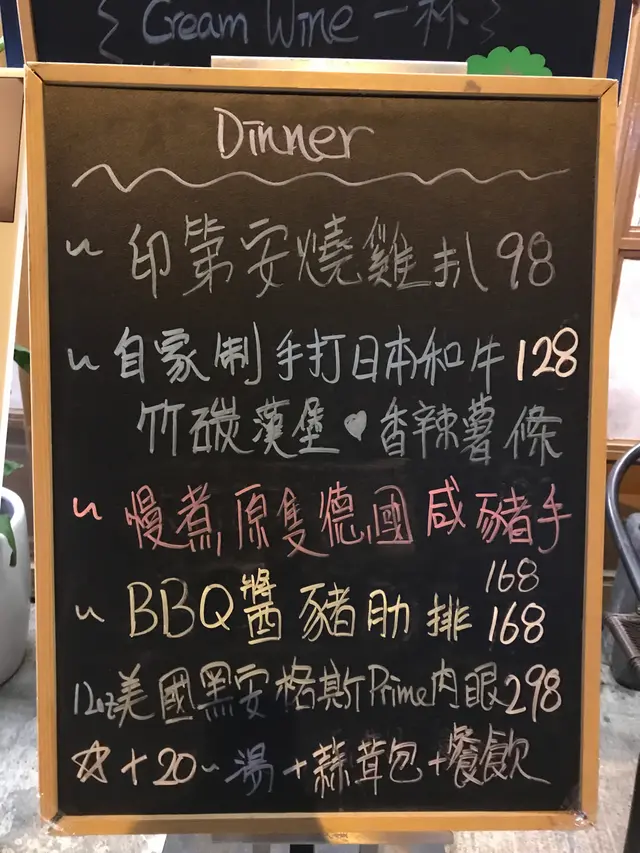 { Cream Wine 一杯 }
Dinner
~ 印第安燒雞扒 98
~ 自家制手打日本和牛 128
竹碳漢堡♥香辣薯條
~ 慢煮原隻德國咸豬手
168
~ BBQ醬豬肋排 168
12oz美國黑安格斯Prime肉眼298
☆+20~湯+蒜茸包+餐飲